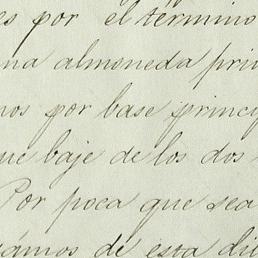 es por el termino
na almoneda pri
nos por base princi
ue baje de los dos
Por poca que sea
amos de esta dil